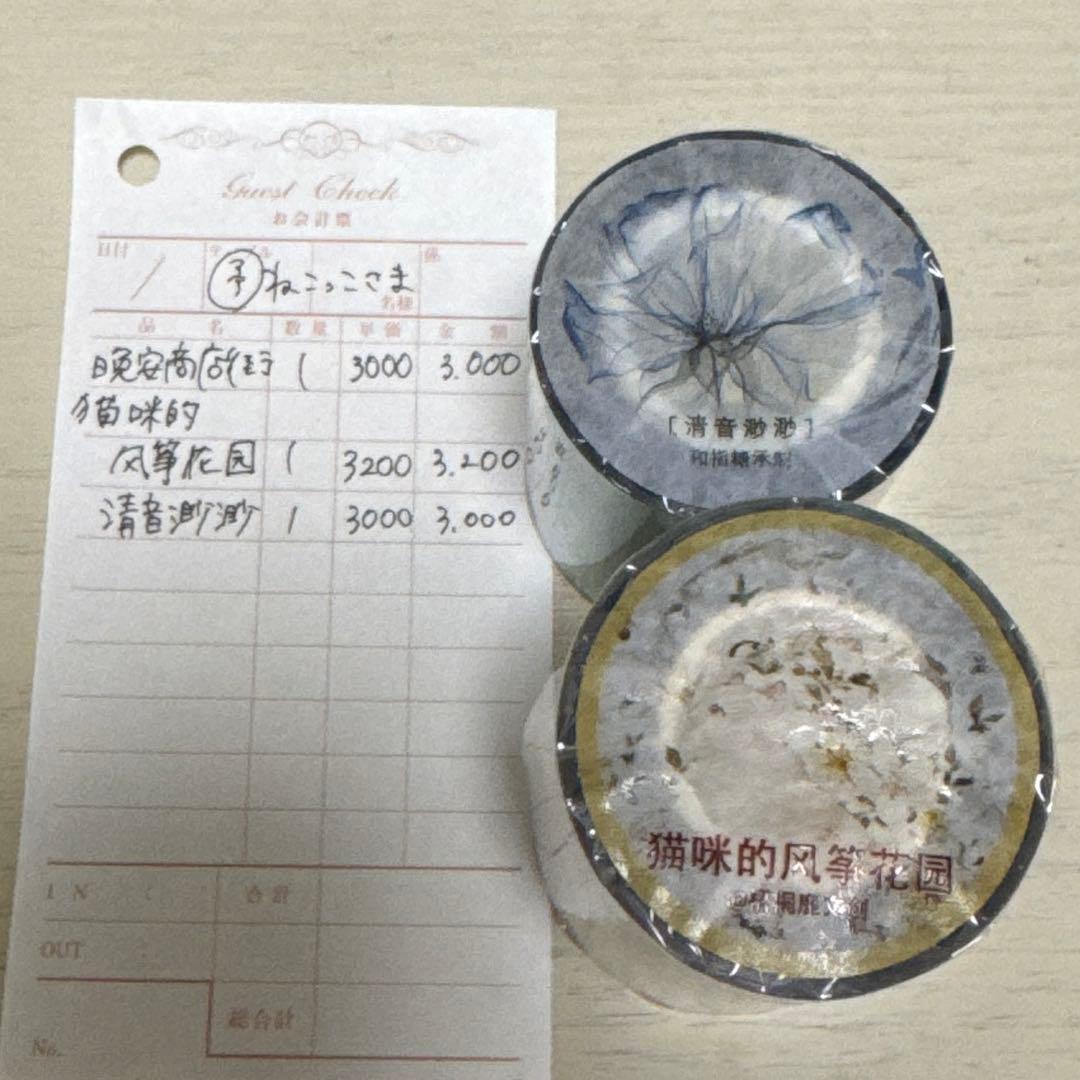 Guest Check
お会計票
日付
テーブル
係
/
予 ねこっこさま
名様
品 名 数量 単価 金 額
晩安商店街 1 3000 3.000
猫咪的
风筝花园 1 3200 3.200
清音渺渺 1 3000 3.000
IN : 合計
OUT :
総合計
No.
[清音渺渺]
和指糖承制
猫咪的风筝花园